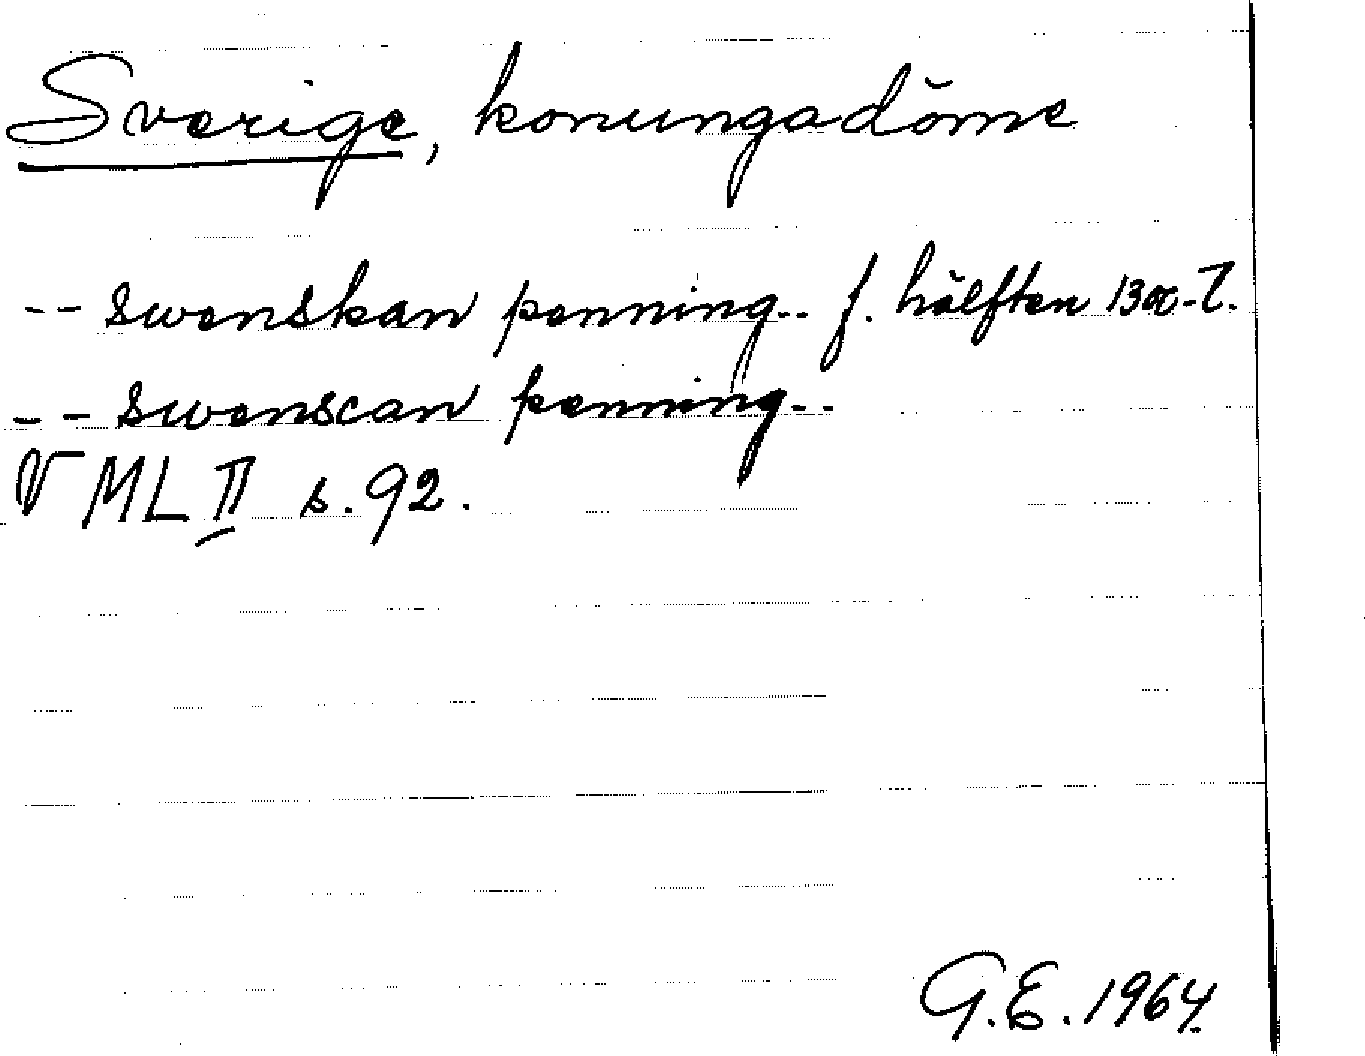 Sverige, konungadöme
-- swenskan penning.. f. hälften 1300-t.
-- swenscan penning..
VML II s. 92.
G.E. 1964